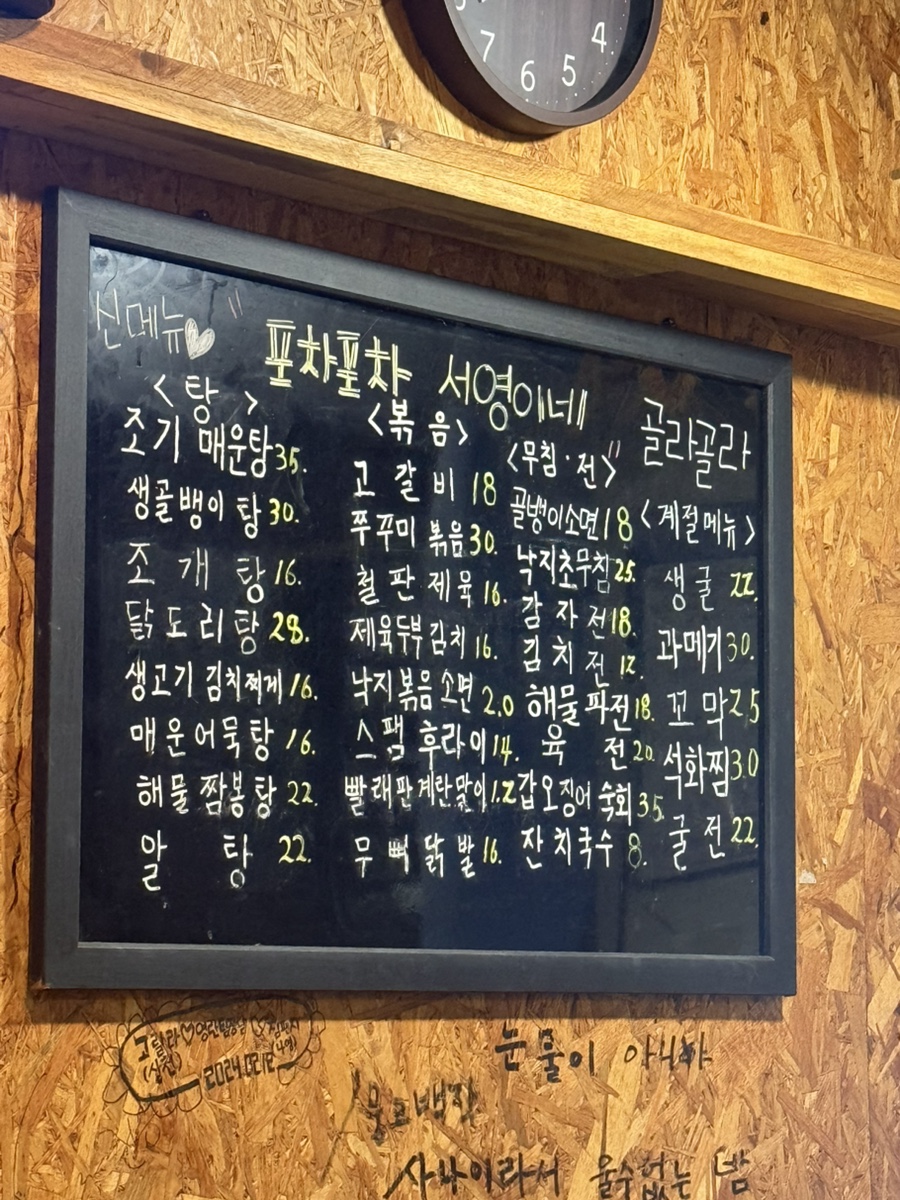 7 6 5 4
신메뉴♥ "
포차포차 서영이네 " 골라골라
<탕>
조기 매운탕 35.
생골뱅이 탕 30.
조개탕 16.
닭도리탕 28.
생고기 김치찌게 16.
매운어묵탕 16.
해물짬뽕탕 22.
알탕 22.
<볶음>
고갈비 18
쭈꾸미 볶음 30.
철판제육 16.
제육두부김치 16.
낙지볶음소면 2.0
스팸 후라이 14.
빨래판계란말이 1.2
무뼈닭발 16.
<무침·전>
골뱅이소면 18
낙지초무침 25.
감자전 18.
김치전 12.
해물파전 18.
육전 20.
갑오징어 숙회 35.
잔치국수 8.
<계절메뉴>
생굴 22.
과메기 30.
꼬막 2.5
석화찜 3.0
굴전 22.
2024.02.12
눈물이 아니다
사나이라서 울수없는 밤